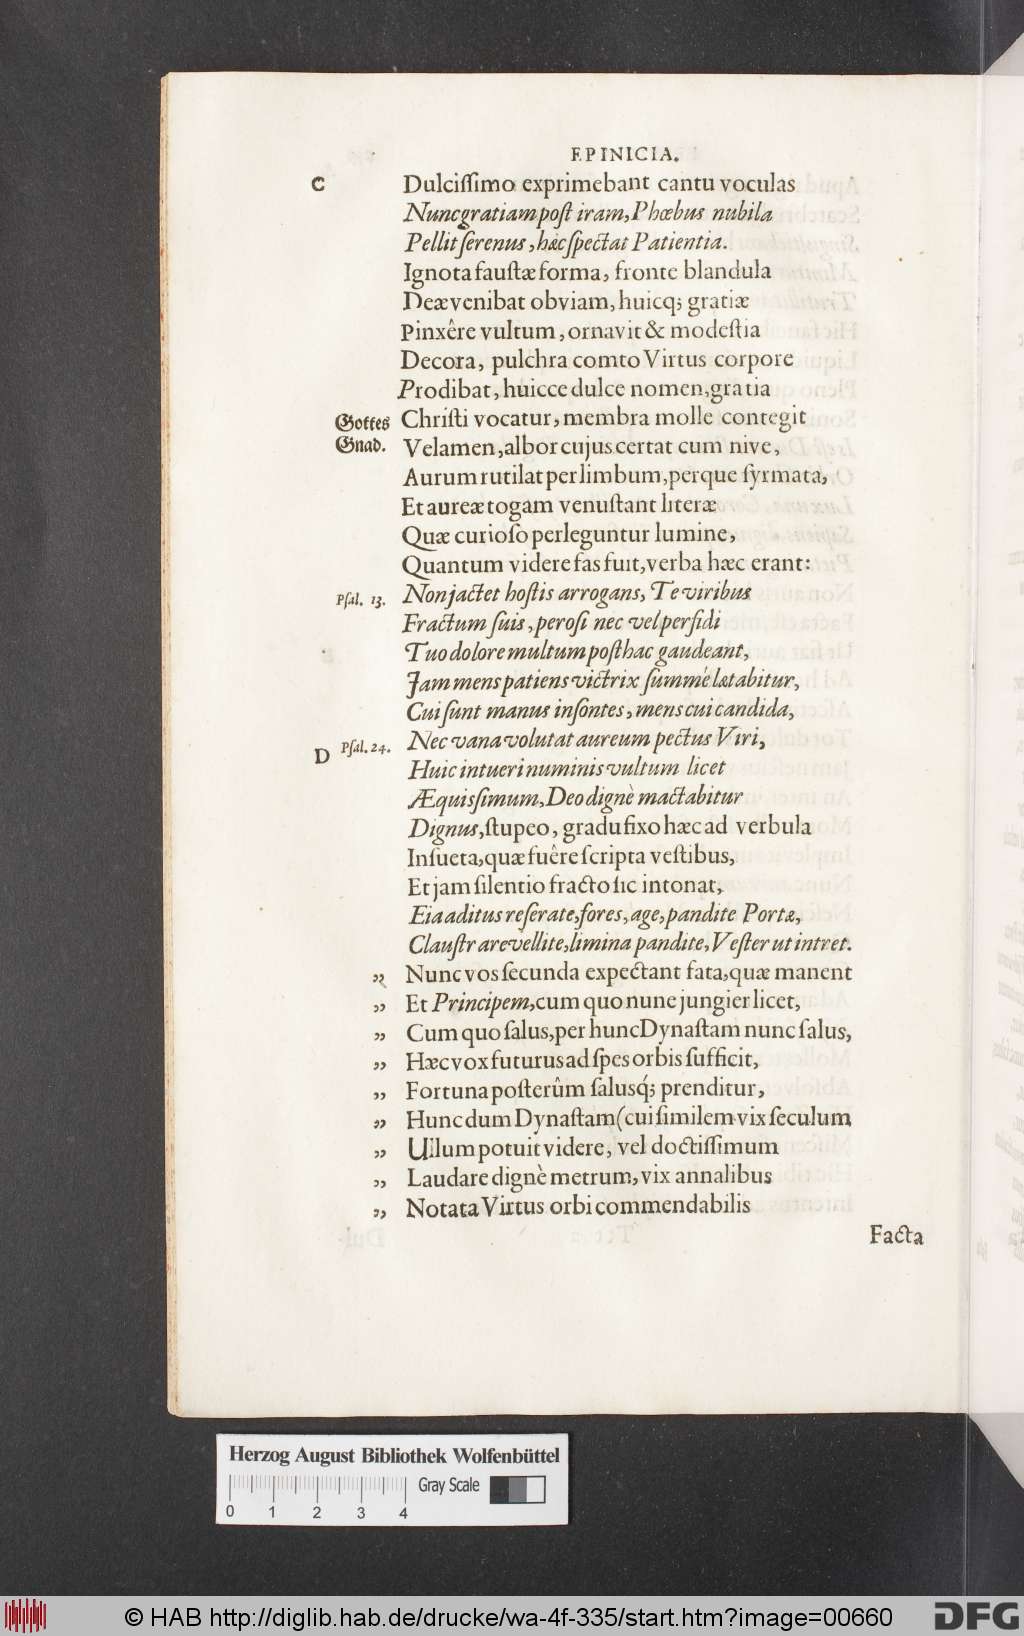 EPINICIA.
C Dulcissimo exprimebant cantu voculas
Nunc gratiam post iram, Phœbus nubila
Pellit serenus, hæc spectat Patientia.
Ignota faustæ forma, fronte blandula
Deæ venibat obviam, huicq; gratiæ
Pinxêre vultum, ornavit & modestia
Decora, pulchra comto Virtus corpore
Prodibat, huicce dulce nomen, gratia
Gottes Christi vocatur, membra molle contegit
Gnad. Velamen, albor cujus certat cum nive,
Aurum rutilat per limbum, perque syrmata,
Et aureæ togam venustant literæ
Quæ curioso perleguntur lumine,
Quantum videre fas fuit, verba hæc erant:
Psal. 13. Non jactet hostis arrogans, Te viribus
Fractum suis, perosi nec vel persidi
Tuo dolore multum posthac gaudeant,
Jam mens patiens victrix summè lætabitur,
Cui sunt manus insontes, mens cui candida,
D Psal. 24. Nec vana volutat aureum pectus Viri,
Huic intueri numinis vultum licet
Æquissimum, Deo dignè mactabitur
Dignus, stupeo, gradu fixo hæc ad verbula
Insueta, quæ fuêre scripta vestibus,
Et jam silentio fracto sic intonat,
Eia aditus reserate, fores, age, pandite Portæ,
Claustra revellite, limina pandite, Vester ut intret.
„ Nunc vos secunda expectant fata, quæ manent
„ Et Principem, cum quo nunc jungier licet,
„ Cum quo salus, per hunc Dynastam nunc salus,
„ Hæc vox futurus ad spes orbis sufficit,
„ Fortuna posterûm salusq́; prenditur,
„ Hunc dum Dynastam (cui similem vix seculum
„ Ullum potuit videre, vel doctissimum
„ Laudare dignè metrum, vix annalibus
„ Notata Virtus orbi commendabilis
Facta
Herzog August Bibliothek Wolfenbüttel
Gray Scale
0 1 2 3 4
© HAB http://diglib.hab.de/drucke/wa-4f-335/start.htm?image=00660
DFG